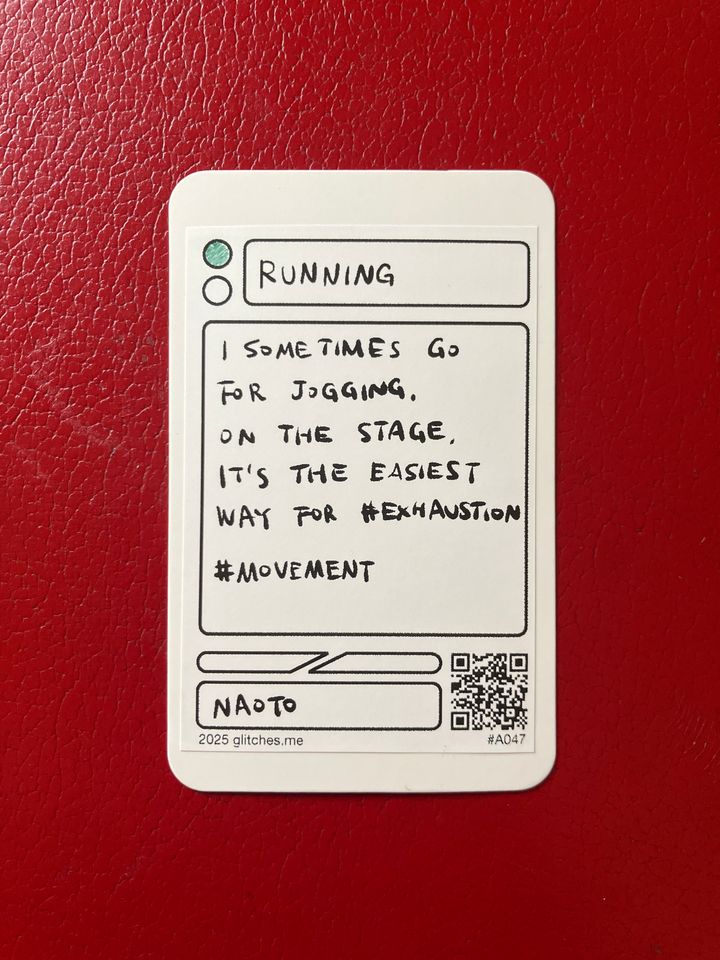 RUNNING
I SOMETIMES GO
FOR JOGGING.
ON THE STAGE,
IT'S THE EASIEST
WAY FOR #EXHAUSTION
#MOVEMENT
NAOTO
2025 glitches.me
#A047